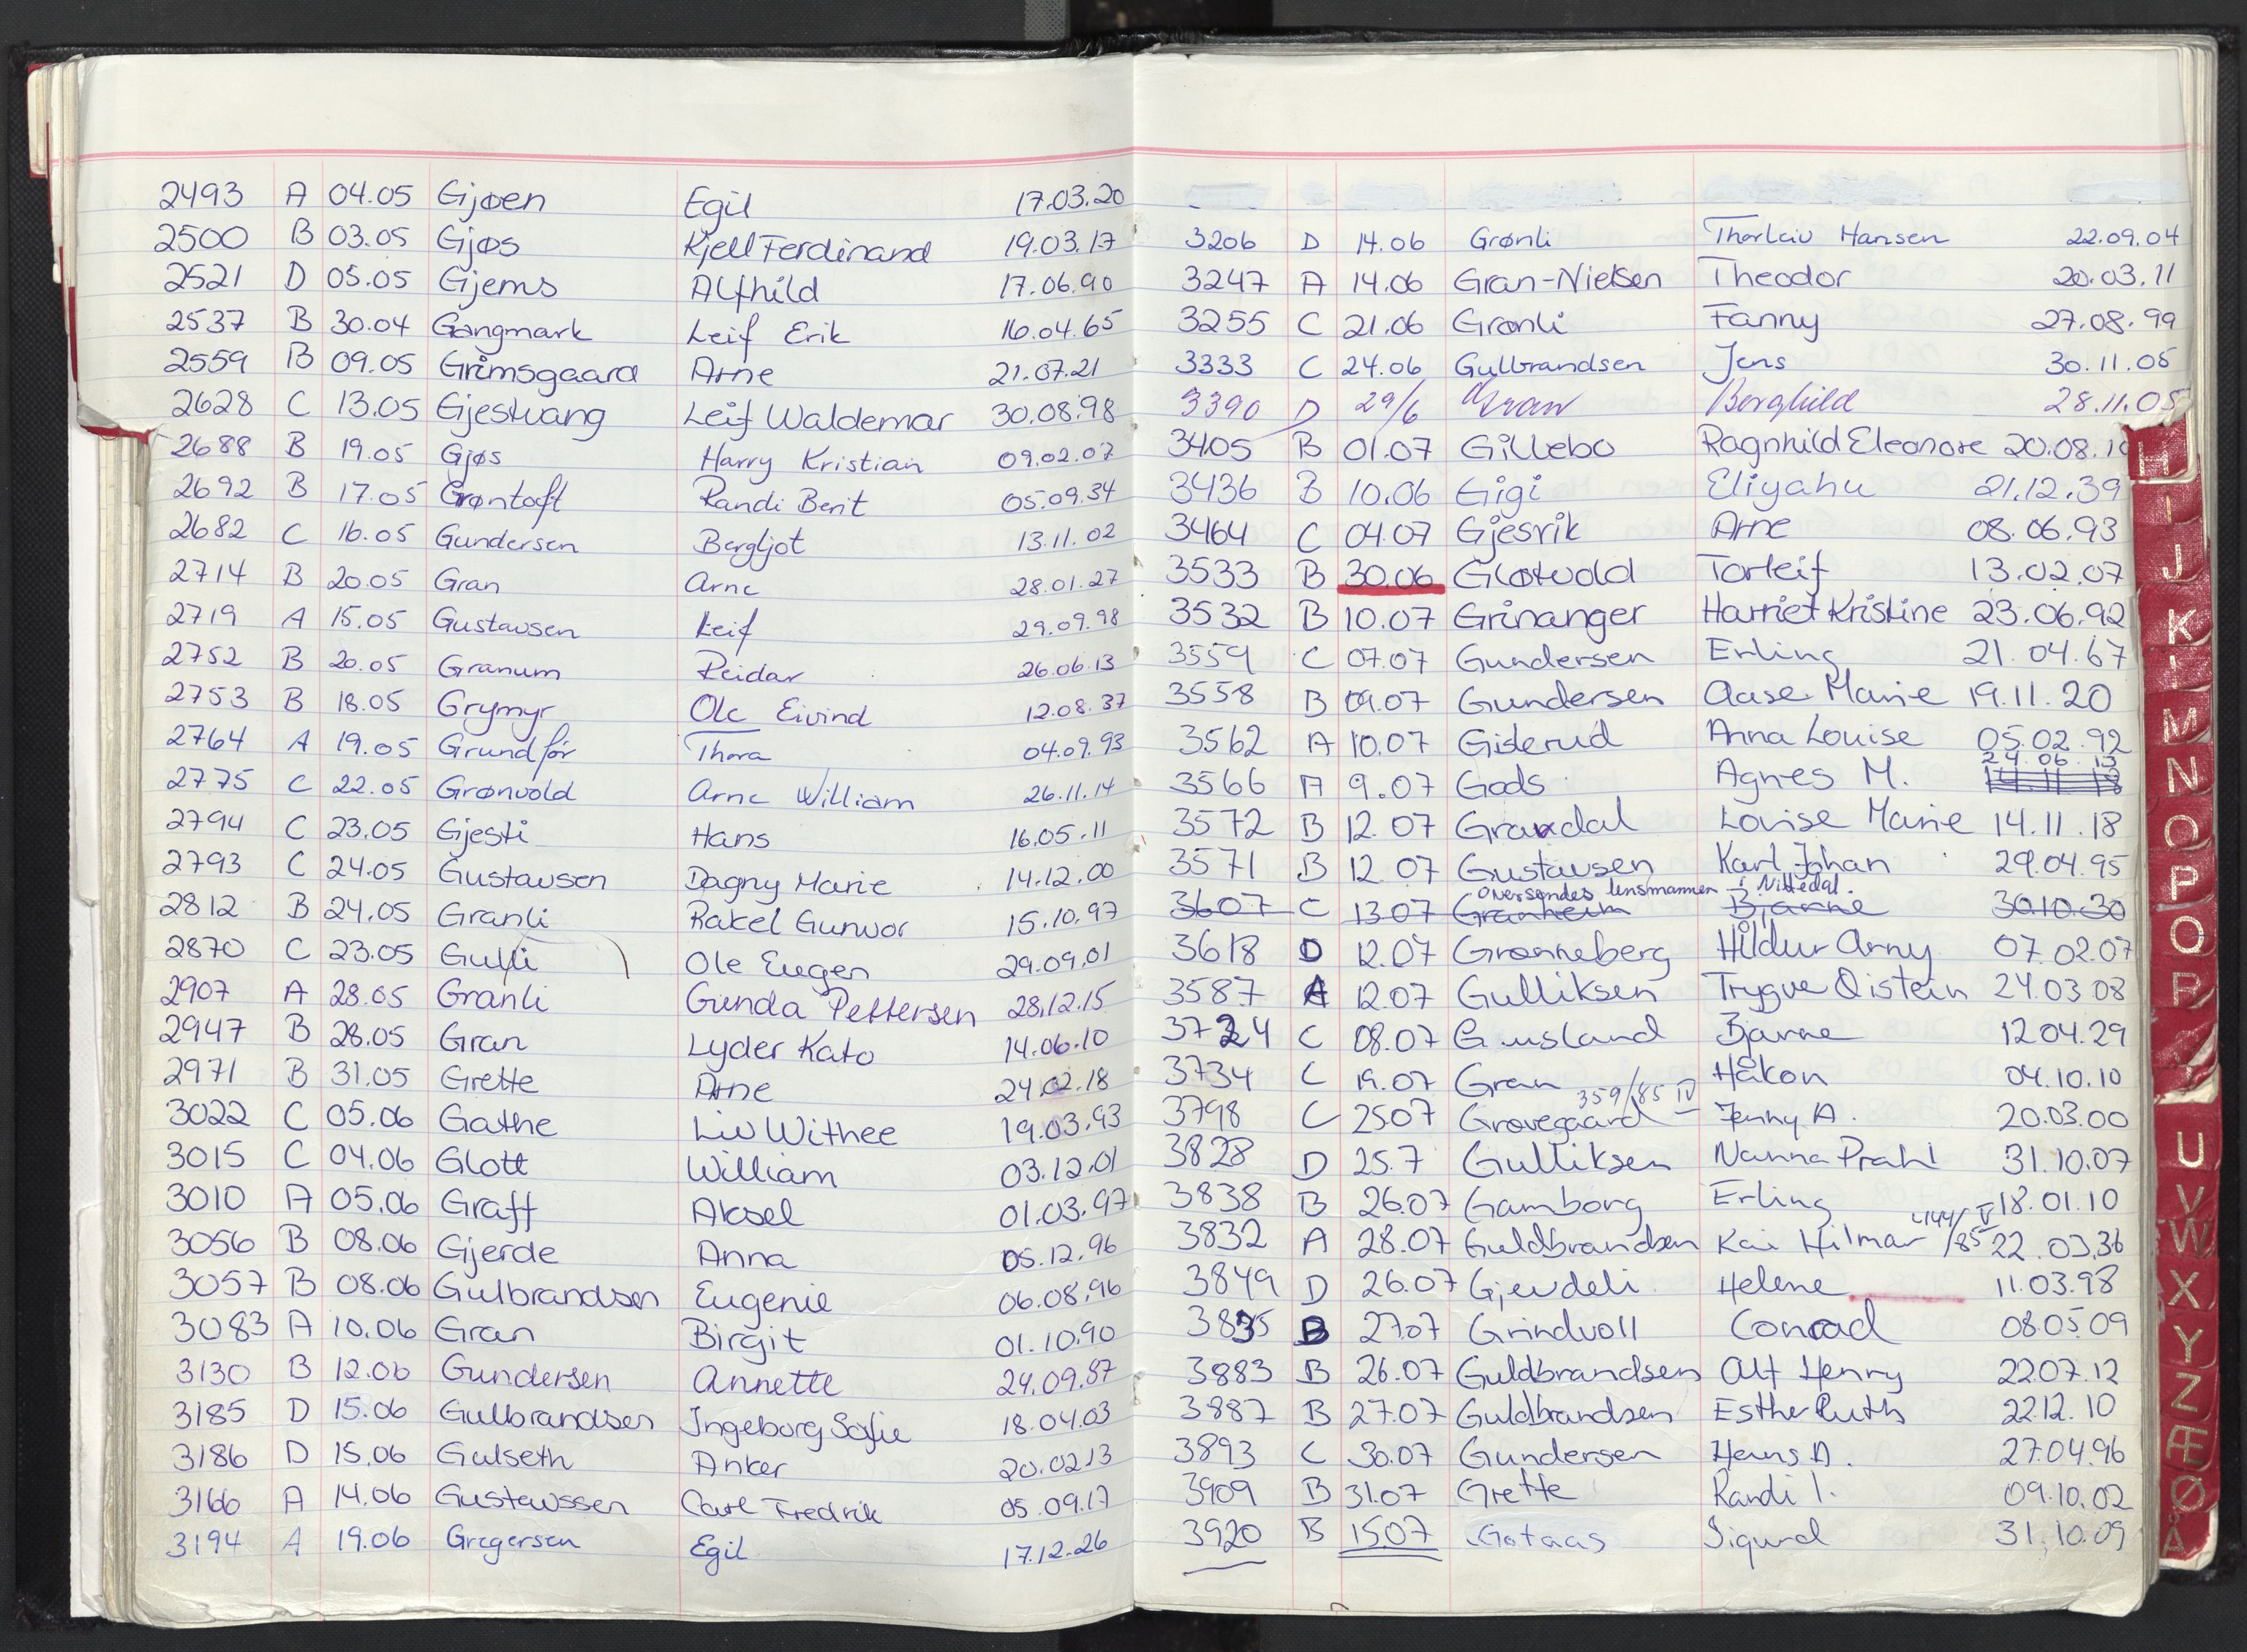 2493 A 04.05 Gjøen Egil 17.03.20
2500 B 03.05 Gjøs Kjell Ferdinand 19.03.17
2521 D 05.05 Gjems Alfhild 17.06.90
2537 B 30.04 Gangmark Leif Erik 16.04.65
2559 B 09.05 Grimsgaard Arne 21.07.21
2628 C 13.05 Gjestvang Leif Waldemar 30.08.98
2688 B 19.05 Gjøs Harry Kristian 09.02.07
2692 B 17.05 Grøntoft Randi Berit 05.09.34
2682 C 16.05 Gundersen Bergljot 13.11.02
2714 B 20.05 Gran Arne 28.01.27
2719 A 15.05 Gustavsen Leif 29.09.98
2752 B 20.05 Granum Reidar 26.06.13
2753 B 18.05 Grymyr Ole Eivind 12.08.37
2764 A 19.05 Grundfør Thora 04.09.93
2775 C 22.05 Grønvold Arne William 26.11.14
2794 C 23.05 Gjesti Hans 16.05.11
2793 C 24.05 Gustavsen Dagny Marie 14.12.00
2812 B 24.05 Granli Rakel Gunvor 15.10.97
2870 C 23.05 Gulli Ole Eugen 29.09.01
2907 A 28.05 Granli Gunda Pettersen 28.12.15
2947 B 28.05 Gran Lyder Kato 14.06.10
2971 B 31.05 Grette Arne 24.02.18
3022 C 05.06 Gathe Liv Withee 19.03.93
3015 C 04.06 Glott William 03.12.01
3010 A 05.06 Graff Aksel 01.03.97
3056 B 08.06 Gjerde Anna 05.12.96
3057 B 08.06 Gulbrandsen Eugenie 06.08.96
3083 A 10.06 Gran Birgit 01.10.90
3130 B 12.06 Gundersen Annette 24.09.87
3185 D 15.06 Gulbrandsen Ingeborg Sofie 18.04.03
3186 D 15.06 Gulseth Anker 20.02.13
3166 A 14.06 Gustavssen Carl Fredrik 05.09.17
3194 A 19.06 Gregersen Egil 17.12.26
3206 D 14.06 Grønli Thorleiv Hansen 22.09.04
3247 A 14.06 Gran-Nielsen Theodor 20.03.11
3255 C 21.06 Grønli Fanny 27.08.99
3333 C 24.06 Gulbrandsen Jens 30.11.05
3390 D 29/6 Gran Borghild 28.11.05
3405 B 01.07 Gillebo Ragnhild Eleonore 20.08.10
3436 B 10.06 Gigi Eliyahu 21.12.39
3464 C 04.07 Gjesvik Arne 08.06.93
3533 B 30.06 Gløtvold Torleif 13.02.07
3532 B 10.07 Grinanger Harriet Kristine 23.06.92
3559 C 07.07 Gundersen Erling 21.04.67
3558 B 09.07 Gundersen Aase Marie 19.11.20
3562 A 10.07 Giderud Anna Louise 05.02.92
24.06.13
3566 A 9.07 Gods Agnes M. 14.11.18
3572 B 12.07 Graxdal Lovise Marie 14.11.18
3571 B 12.07 Gustavsen Karl Johan 29.04.95
oversendes lensmannen i Nittedal.
3607 C 13.07 Granheim Bjarne 30.10.30
3618 D 12.07 Grønneberg Hildur Arny 07.02.07
3587 A 12.07 Gulliksen Trygve Øistein 24.03.08
3724 C 08.07 Gausland Bjarne 12.04.29
3734 C 19.07 Gran Håkon 04.10.10
359/85 IV
3798 C 25.07 Grovegaard Jenny A. 20.03.00
3828 D 25.7 Gulliksen Nanna Prahl 31.10.07
3838 B 26.07 Gamborg Erling 18.01.10
3832 A 28.07 Guldbrandsen Kai Hilmar /85 V 22.03.36
3849 D 26.07 Gjevdeli Helene 11.03.98
3835 B 27.07 Grindvoll Conrad 08.05.09
3883 B 26.07 Guldbrandsen Alf Henry 22.07.12
3887 B 27.07 Guldbrandsen Esther Ruth 22.12.10
3893 C 30.07 Gundersen Hans A. 27.04.96
3909 B 31.07 Grette Randi I. 09.10.02
3920 B 15.07 Gotaas Sigurd 31.10.09
H
I
J
K
L
M
N
O
P
Q
R
U
V
W
X
Y
Z
Æ
Ø
Å